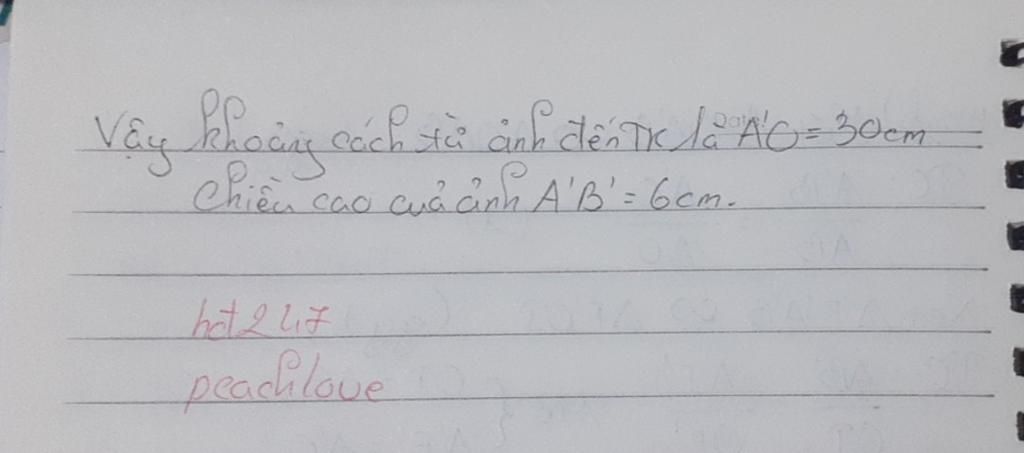 Vậy khoảng cách từ ảnh đến TK là A'O = 30cm
Chiều cao cuả ảnh A'B' = 6cm.
hot247
peachlove